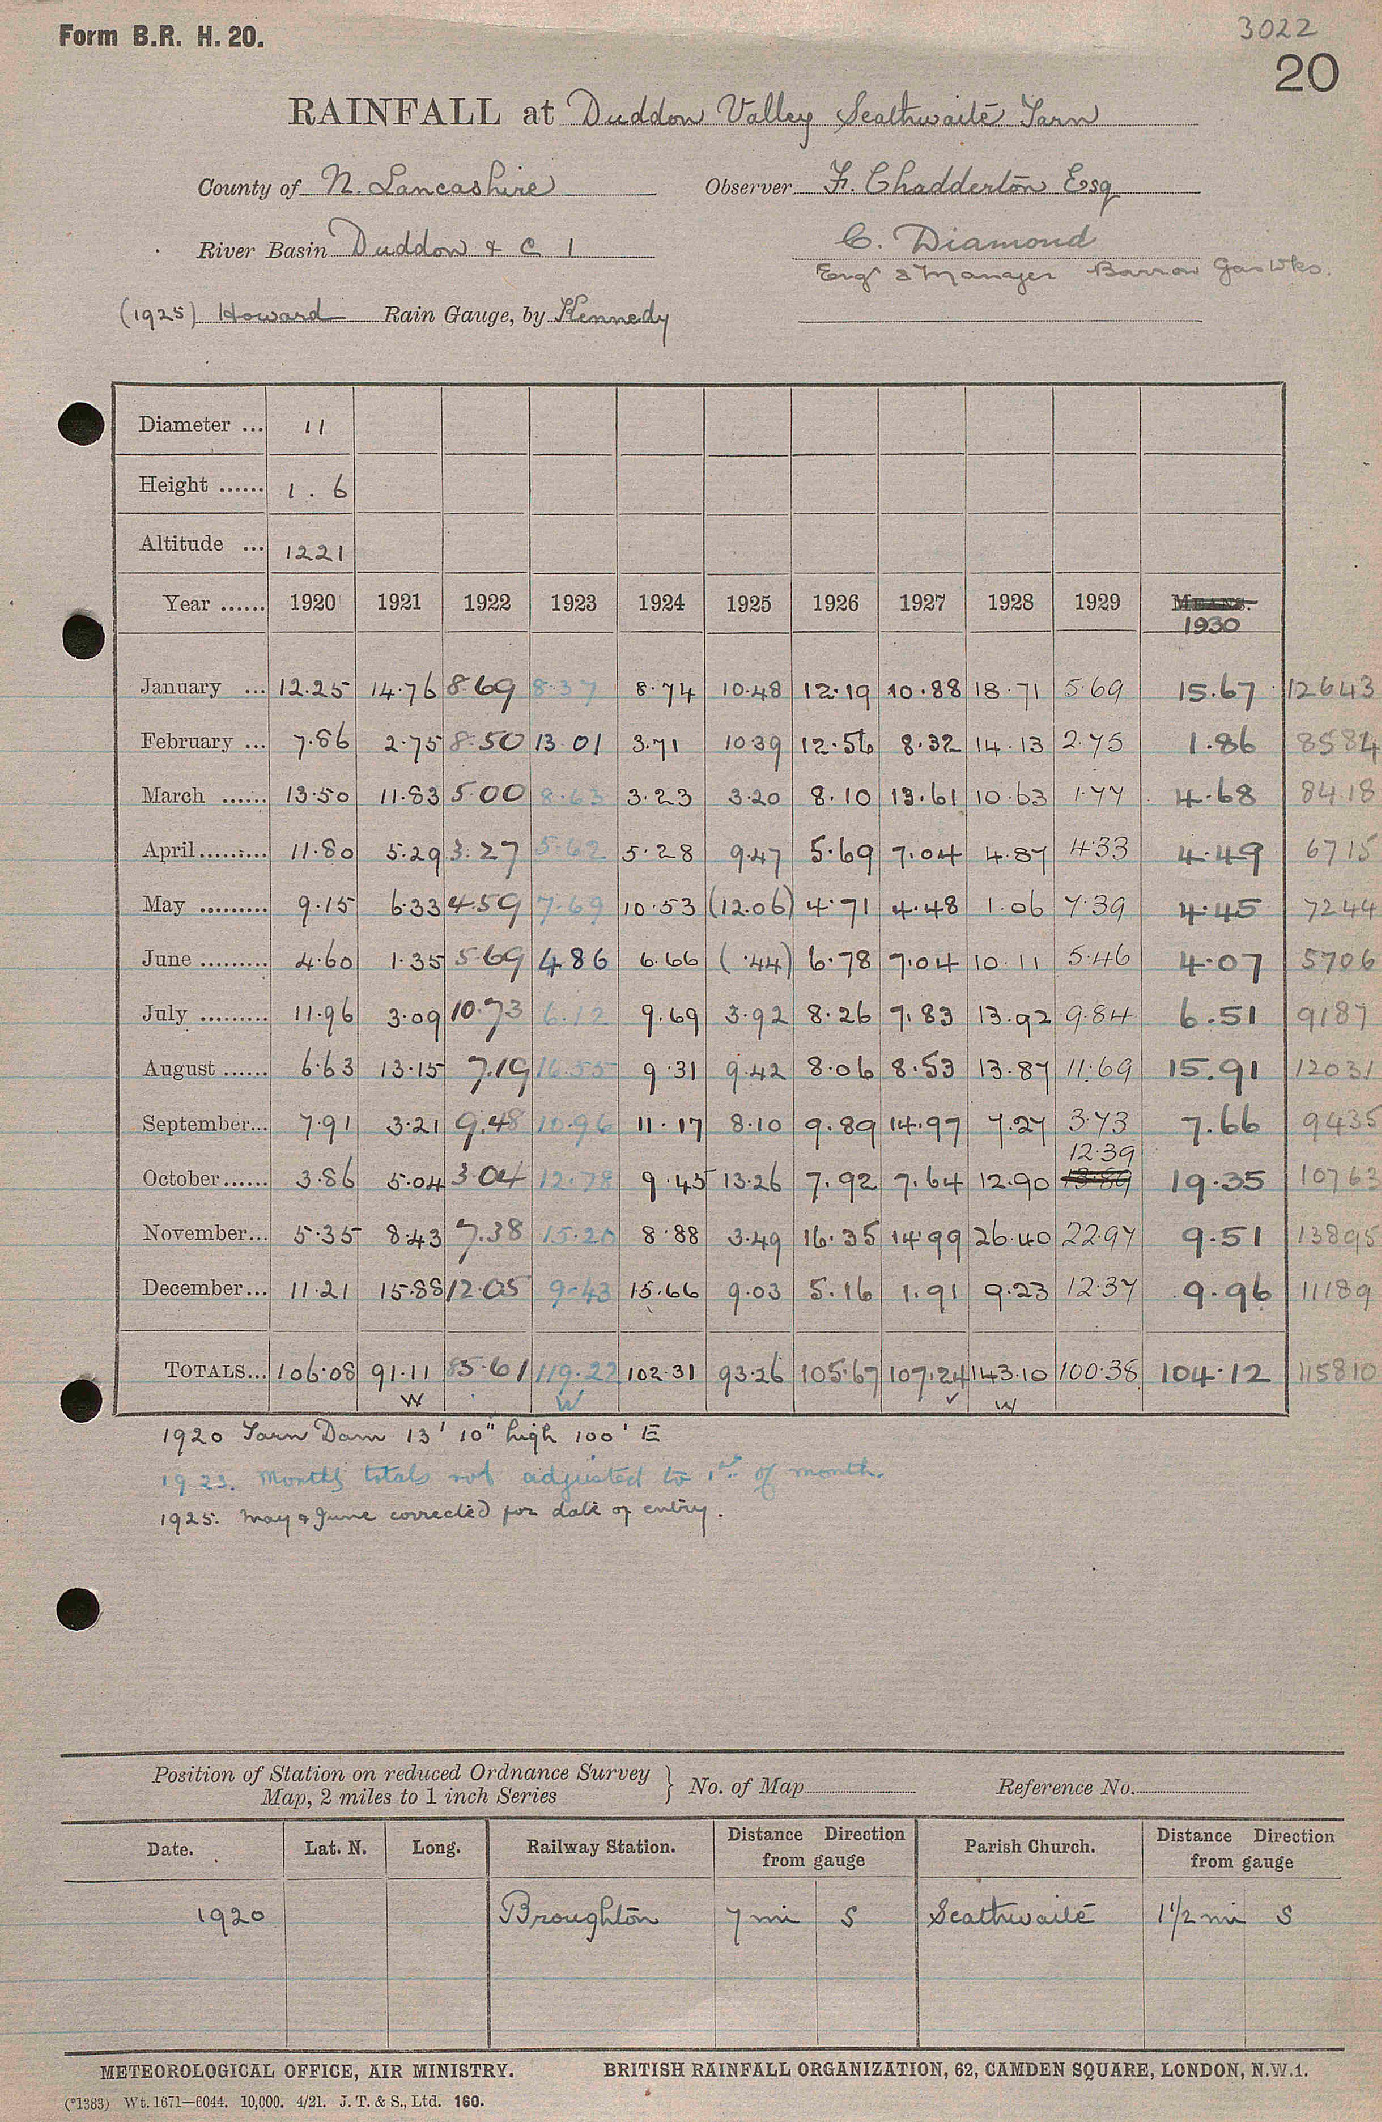 Form B.R. H. 20.
3022
20
RAINFALL at Duddon Valley Seathwaite Tarn
County of N. Lancashire Observer F. Chadderton Esq
River Basin Duddon & C 1 C. Diamond
Engr & Manager Barrow Gas Wks.
(1925) Howard Rain Gauge, by Kennedy
Diameter ... 11
Height ...... 1 . 6
Altitude ... 1221
Year ...... 1920 1921 1922 1923 1924 1925 1926 1927 1928 1929 MEANS.
1930
January ... 12.25 14.76 8.69 8.37 8.74 10.48 12.19 10.88 18.71 5.69 15.67 12643
February ... 7.86 2.75 8.50 13.01 3.71 10.39 12.56 8.32 14.13 2.75 1.86 8584
March ...... 13.50 11.83 5.00 8.63 3.23 3.20 8.10 13.61 10.63 1.77 4.68 8418
April ......... 11.80 5.29 3.27 5.62 5.28 9.47 5.69 7.04 4.87 4.33 4.49 6715
May ......... 9.15 6.33 4.59 7.69 10.53 (12.06) 4.71 4.48 1.06 7.39 4.45 7244
June ......... 4.60 1.35 5.69 4.86 6.66 ( .44) 6.78 7.04 10.11 5.46 4.07 5706
July ......... 11.96 3.09 10.73 6.12 9.69 3.92 8.26 7.83 13.92 9.84 6.51 9187
August ...... 6.63 13.15 7.19 16.55 9.31 9.42 8.06 8.53 13.87 11.69 15.91 12031
September... 7.91 3.21 9.48 10.96 11.17 8.10 9.89 14.97 7.27 3.73 7.66 9435
12.39
October ...... 3.86 5.04 3.04 12.78 9.45 13.26 7.92 7.64 12.90 13.89 19.35 10763
November... 5.35 8.43 7.38 15.20 8.88 3.49 16.35 14.99 26.40 22.97 9.51 13895
December... 11.21 15.88 12.05 9.43 15.66 9.03 5.16 1.91 9.23 12.37 9.96 11189
TOTALS... 106.08 91.11 85.61 119.22 102.31 93.26 105.67 107.24 143.10 100.38 104.12 115810
W W ✓ W
1920 Tarn Dam 13' 10" high 100' E
1923. Monthly totals not adjusted to 1st of month.
1925. May & June corrected for date of entry.
Position of Station on reduced Ordnance Survey
Map, 2 miles to 1 inch Series } No. of Map Reference No.
Date. Lat. N. Long. Railway Station. Distance Direction from gauge Parish Church. Distance Direction from gauge
1920 Broughton 7 mi S Seathwaite 1 1/2 mi S
METEOROLOGICAL OFFICE, AIR MINISTRY. BRITISH RAINFALL ORGANIZATION, 62, CAMDEN SQUARE, LONDON, N.W.1.
(*1383) Wt. 1671—6044. 10,000. 4/21. J. T. & S., Ltd. 160.